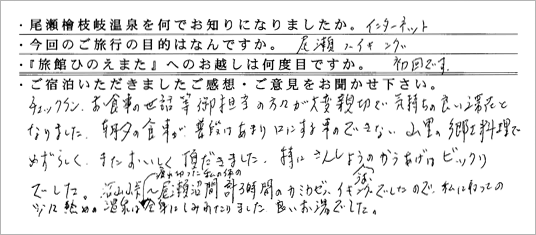 ・尾瀬檜枝岐温泉を何でお知りになりましたか。インターネット
・今回のご旅行の目的はなんですか。 尾瀬ハイキング
・『旅館ひのえまた』へのお越しは何度目ですか。 初回です。
・ご宿泊いただきましたご感想・ご意見をお聞かせ下さい。
チェックイン、お食事の世話等御担当の方々が大変親切で気持ちの良い滞在と
なりました。朝夕の食事が普段はあまり口にする事のできない山里の郷土料理で
めずらしく、またおいしく頂だきました。特にさんしょうのからあげはビックリ
でした。沼山峠〜尾瀬沼間 計3時間のカミカゼハイキングでしたので、私にとっての
温泉は全身にしみわたりました 良いお湯でした。